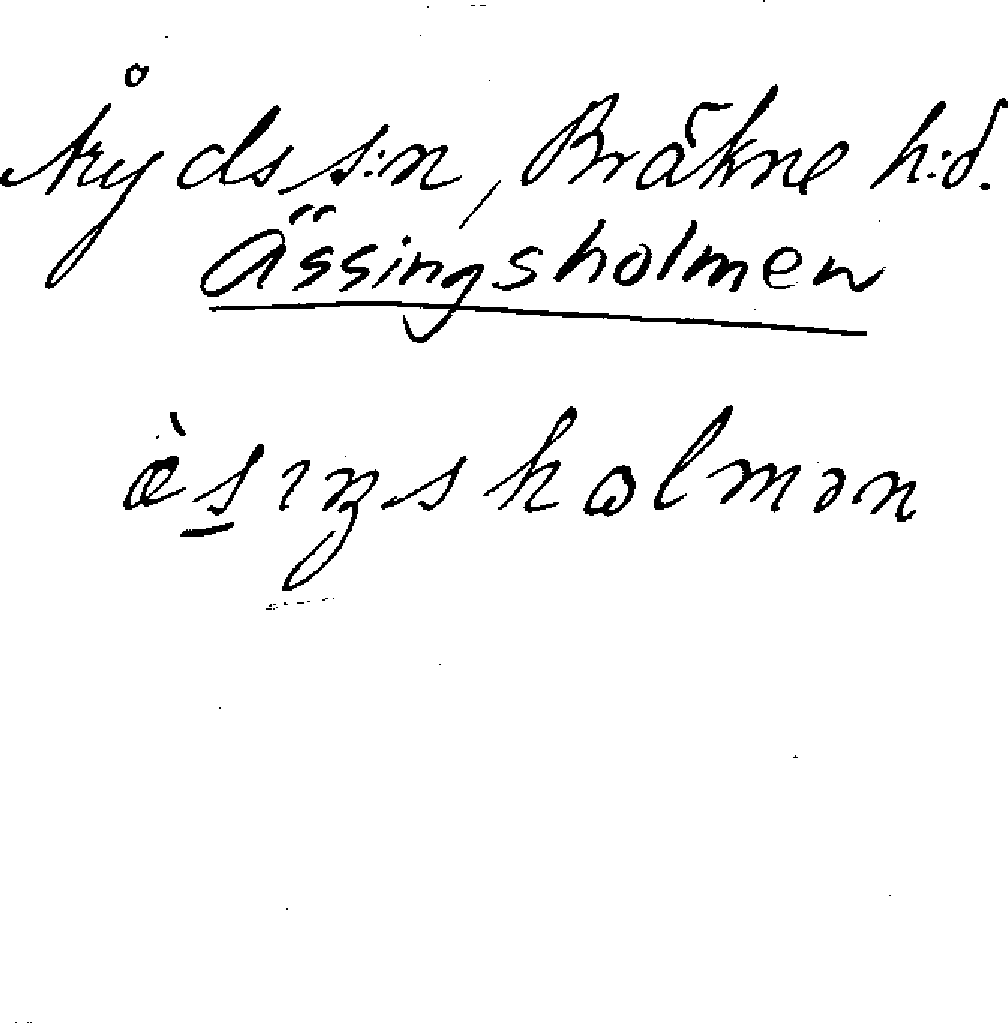 Åryds s:n, Bräkne h:d.
Ässingsholmen
æ̀sıŋsholmən